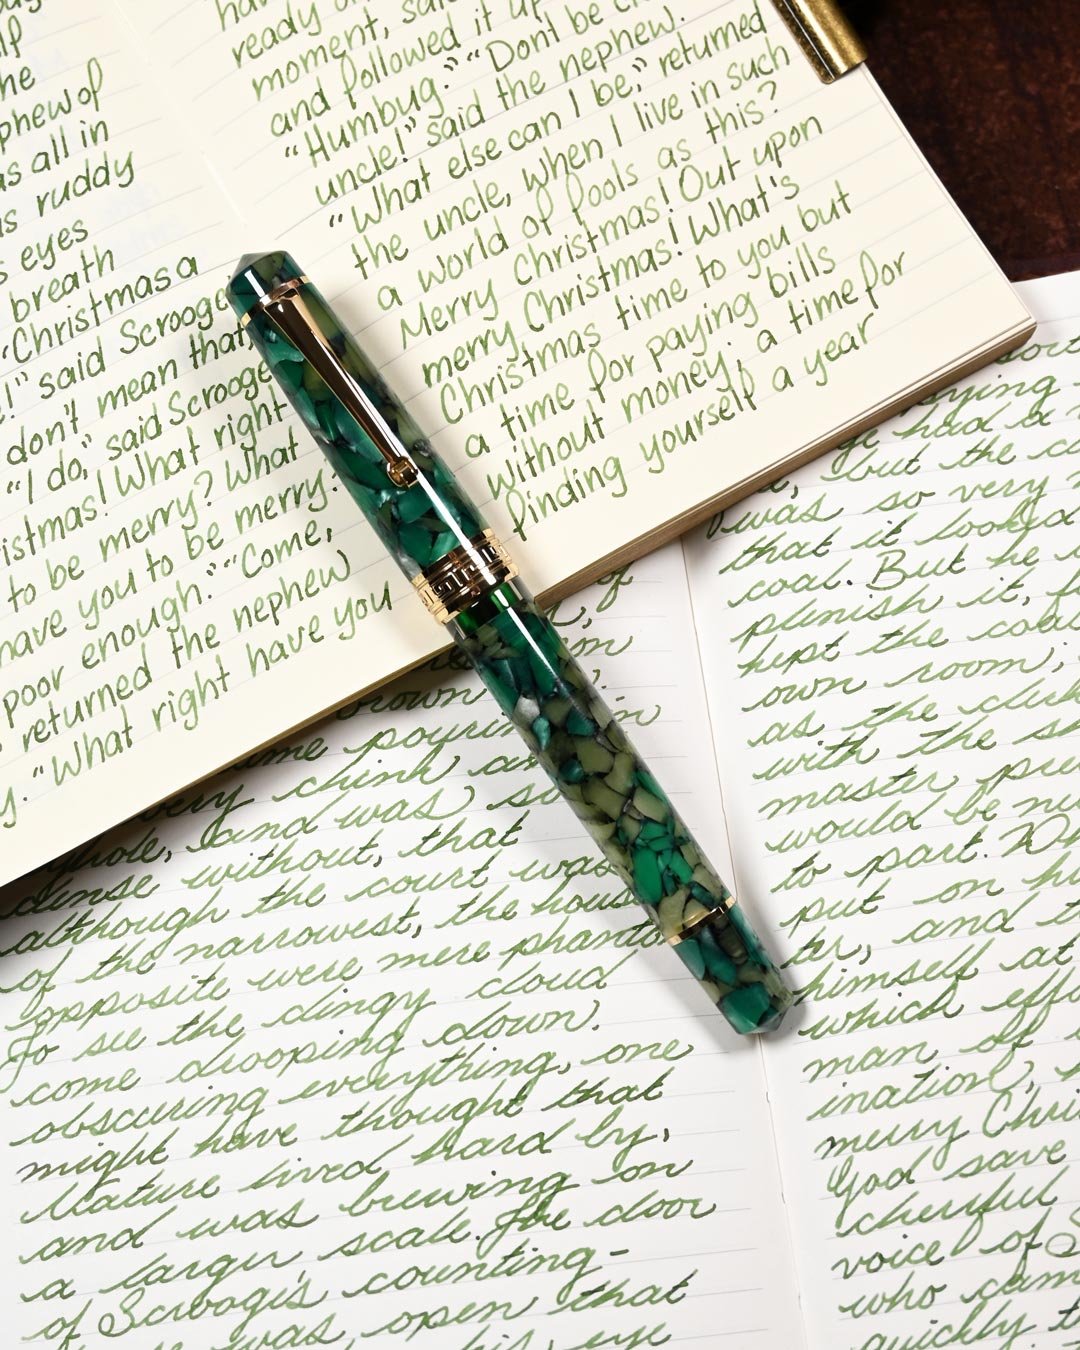 ready
moment, said
and followed it up
"Humbug." "Don't be
uncle!" said the nephew.
"What else can I be," returned
the uncle, when I live in such
a world of fools as this?
Merry Christmas! Out upon
merry Christmas! What's
Christmas time to you but
a time for paying bills
without money; a time for
finding yourself a year
the
phew of
as all in
ruddy
eyes
breath
"Christmas a
!" said Scrooge
don't mean that,
"I do," said Scrooge
istmas! What right
to be merry? What
have you to be merry?
poor enough." "Come,
returned the nephew
"What right have you
of
brown
came pouring in
every chink and
hole, and was so
dense without, that
although the court was
of the narrowest, the houses
opposite were mere phantoms
To see the dingy cloud
come drooping down,
obscuring everything, one
might have thought that
Nature lived hard by,
and was brewing on
a large scale. The door
of Scrooge's counting-
was open that
his eye
had a
but the
was so very
that it looked
coal. But he
plenish it,
kept the coal
own room;
as the clerk
with the
master
would be
to part.
put on
ter, and
himself at
which
man of
ination,
merry
God save
cheerful
voice of
who came
quickly